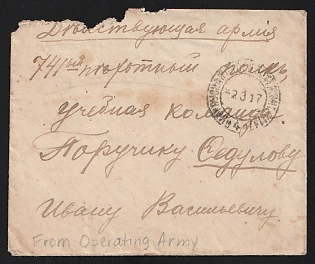 Дѣйствующая армія
741ый пѣхотный полкъ,
учебная команда
Поручику Седулову
Ивану Васильевичу
From Operating Army
2 3 17